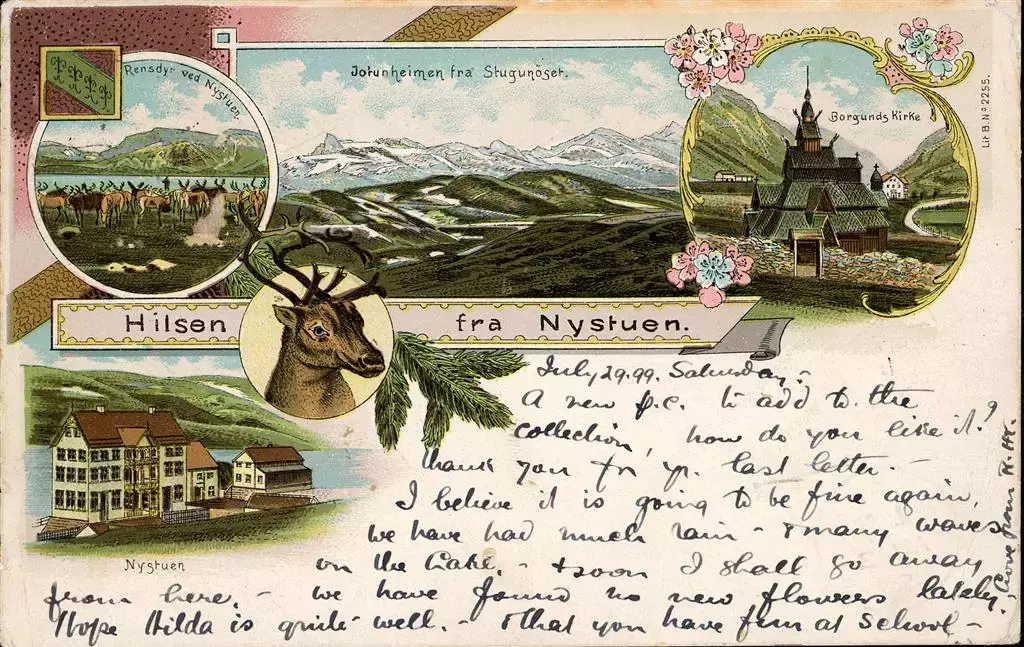 Rensdyr ved Nystuen.
Jotunheimen fra Stugunöset.
Borgunds Kirke
Lit B. No 2255.
Hilsen fra Nystuen.
Nystuen
July 29.99. Saturday.-
A new p.c. to add to the
collection, how do you like it?
thank you for yr. last letter.-
I believe it is going to be fine again,
we have had much rain - & many waves
on the Lake. - & soon I shall go away
from here. - we have found no new flowers lately.-
Hope Hilda is quite well. - & that you have fun at School -
Love from